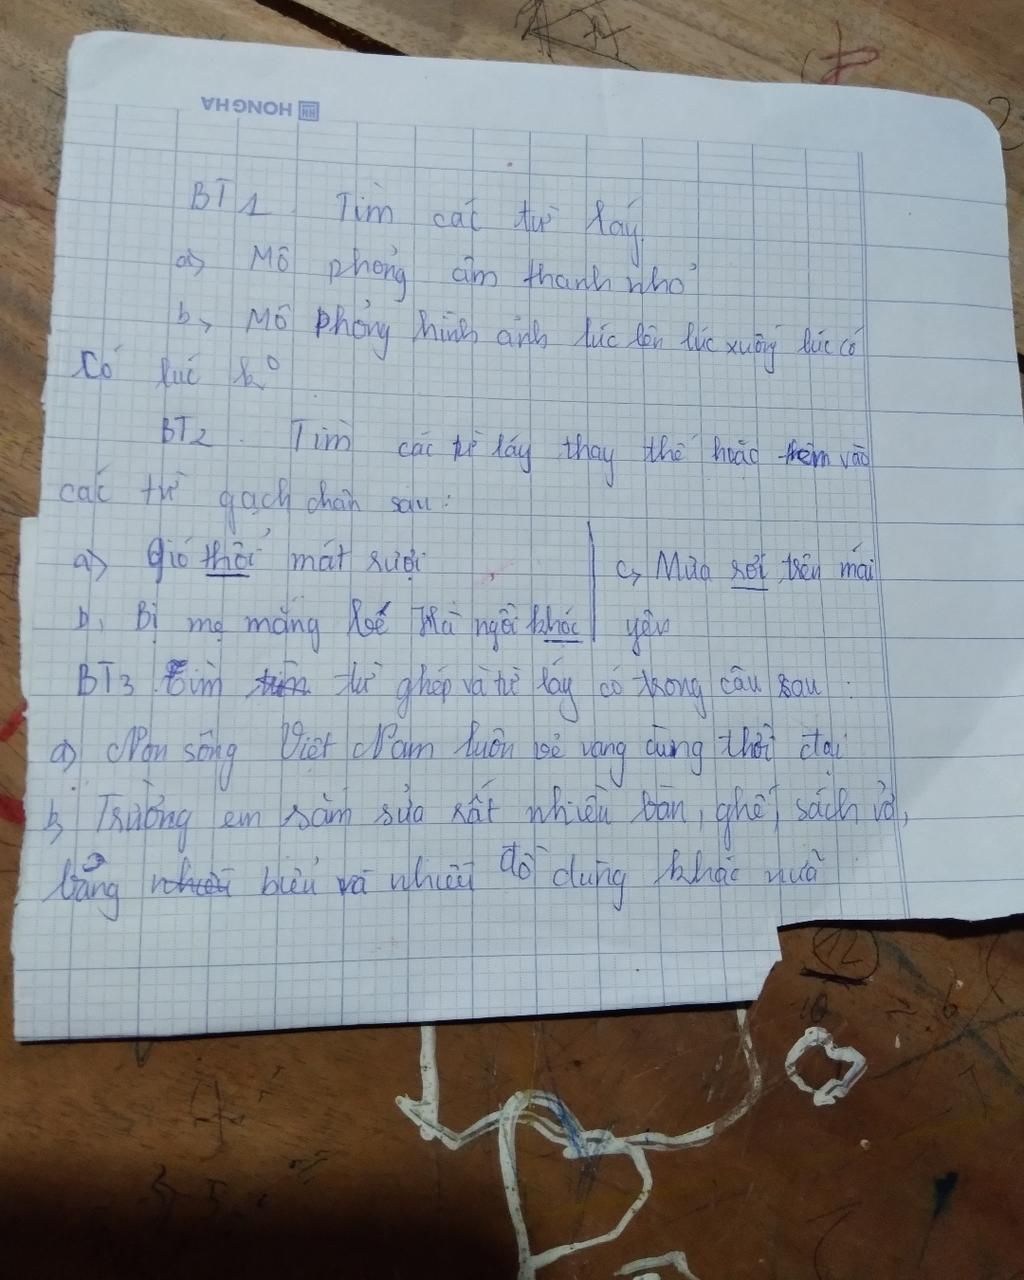 HONG HA
BT1 Tìm các từ láy
a) Mô phỏng âm thanh nhỏ
b, Mô phỏng hình ảnh lúc lên lúc xuống lúc có
có lúc k°
BT2. Tìm các từ láy thay thế hoặc thêm vào
các từ gạch chân sau:
a) gió thổi mát rượi
b, Bị mẹ mắng bé Hà ngồi khóc
c, Mưa rơi trên mái
yên
BT3 Tìm từ ghép và từ láy có trong câu sau:
a) Non sông Việt Nam luôn vẻ vang cùng thời đại
b, Trường em sắm sửa rất nhiều bàn, ghế, sách vở,
bảng biểu và nhiều đồ dùng khác nữa
12